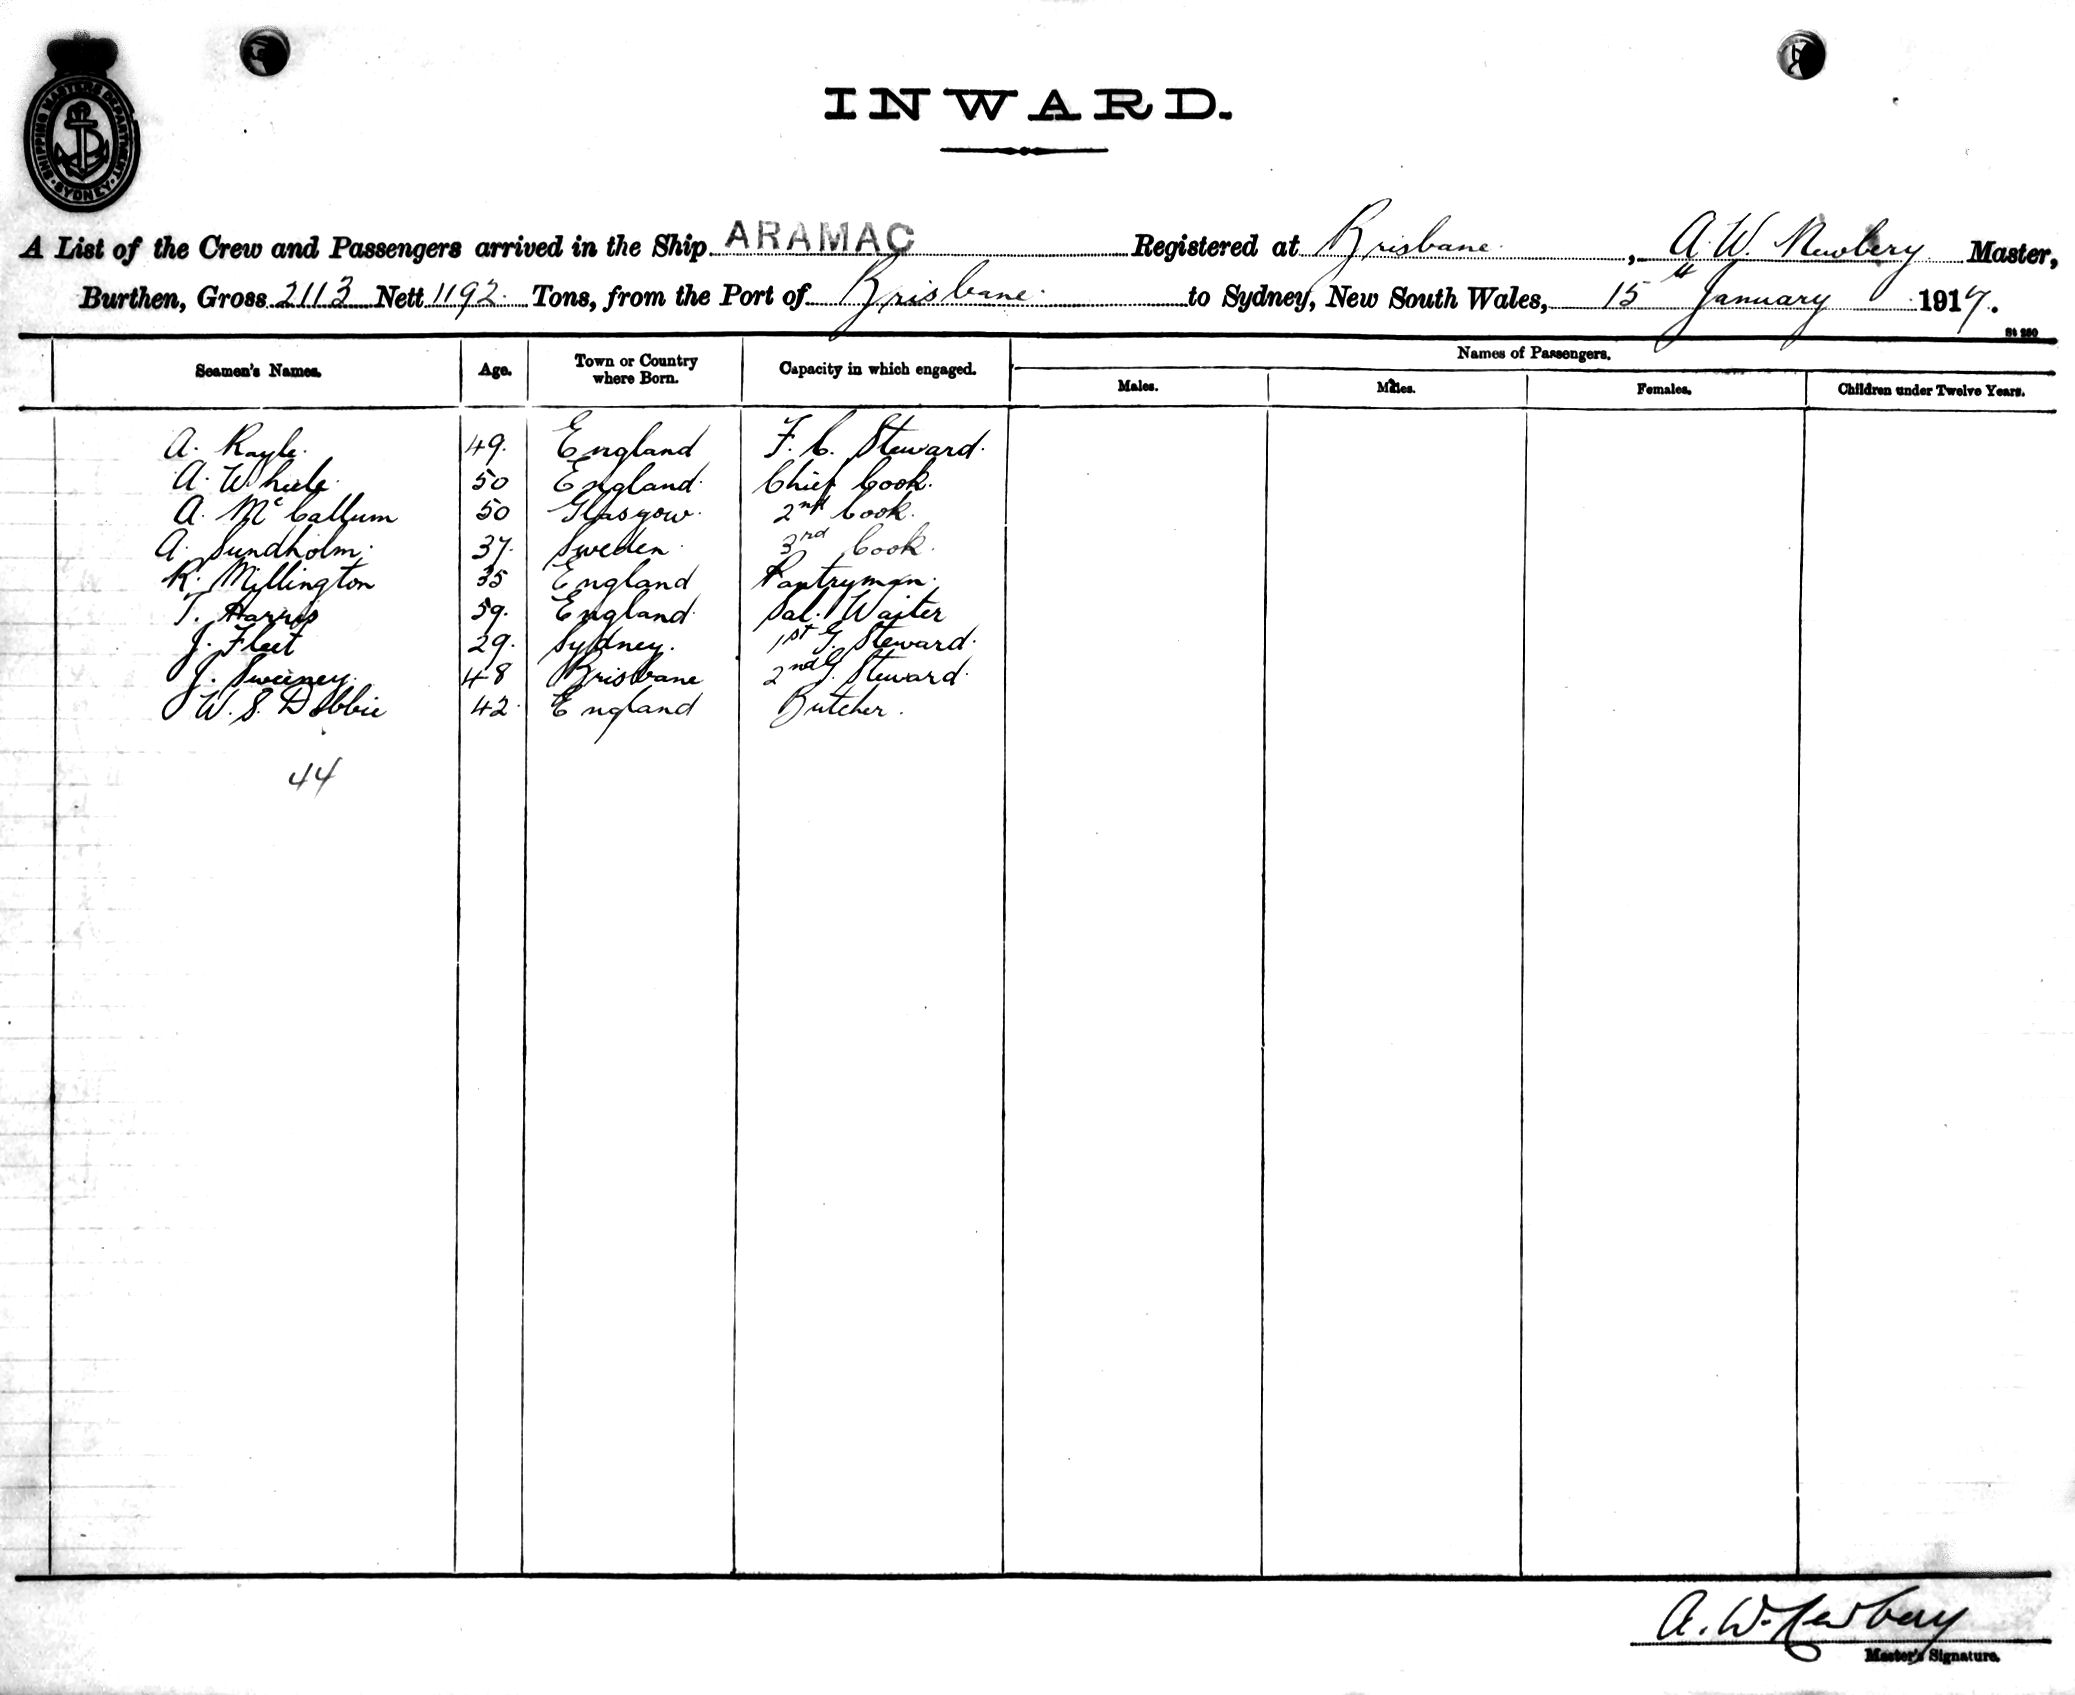 SHIPPING MASTERS DEPARTMENT · SYDNEY ·
INWARD.
A List of the Crew and Passengers arrived in the Ship ARAMAC Registered at Brisbane, A. W. Newbery Master,
Burthen, Gross 2113 Nett 1192 Tons, from the Port of Brisbane to Sydney, New South Wales, 15th January 1917.
St 280
Seamen's Names. Age. Town or Country where Born. Capacity in which engaged. Names of Passengers.
Males. Males. Females. Children under Twelve Years.
A. Kayle. 49. England F. C. Steward.
A. 50 England. Chief Cook.
A. McCallum 50 Glasgow. 2nd Cook.
A. Sundholm. 37. Sweden. 3rd Cook.
R. Millington 35 England Pantryman.
T. Harris 59. England. Sal. Waiter
J. Fleet 29. Sydney. 1st G. Steward.
J. Sweeney. 48 Brisbane 2nd G. Steward.
W. S. Dobbie 42. England Butcher.
44
A. W. Newbery
Master's Signature.